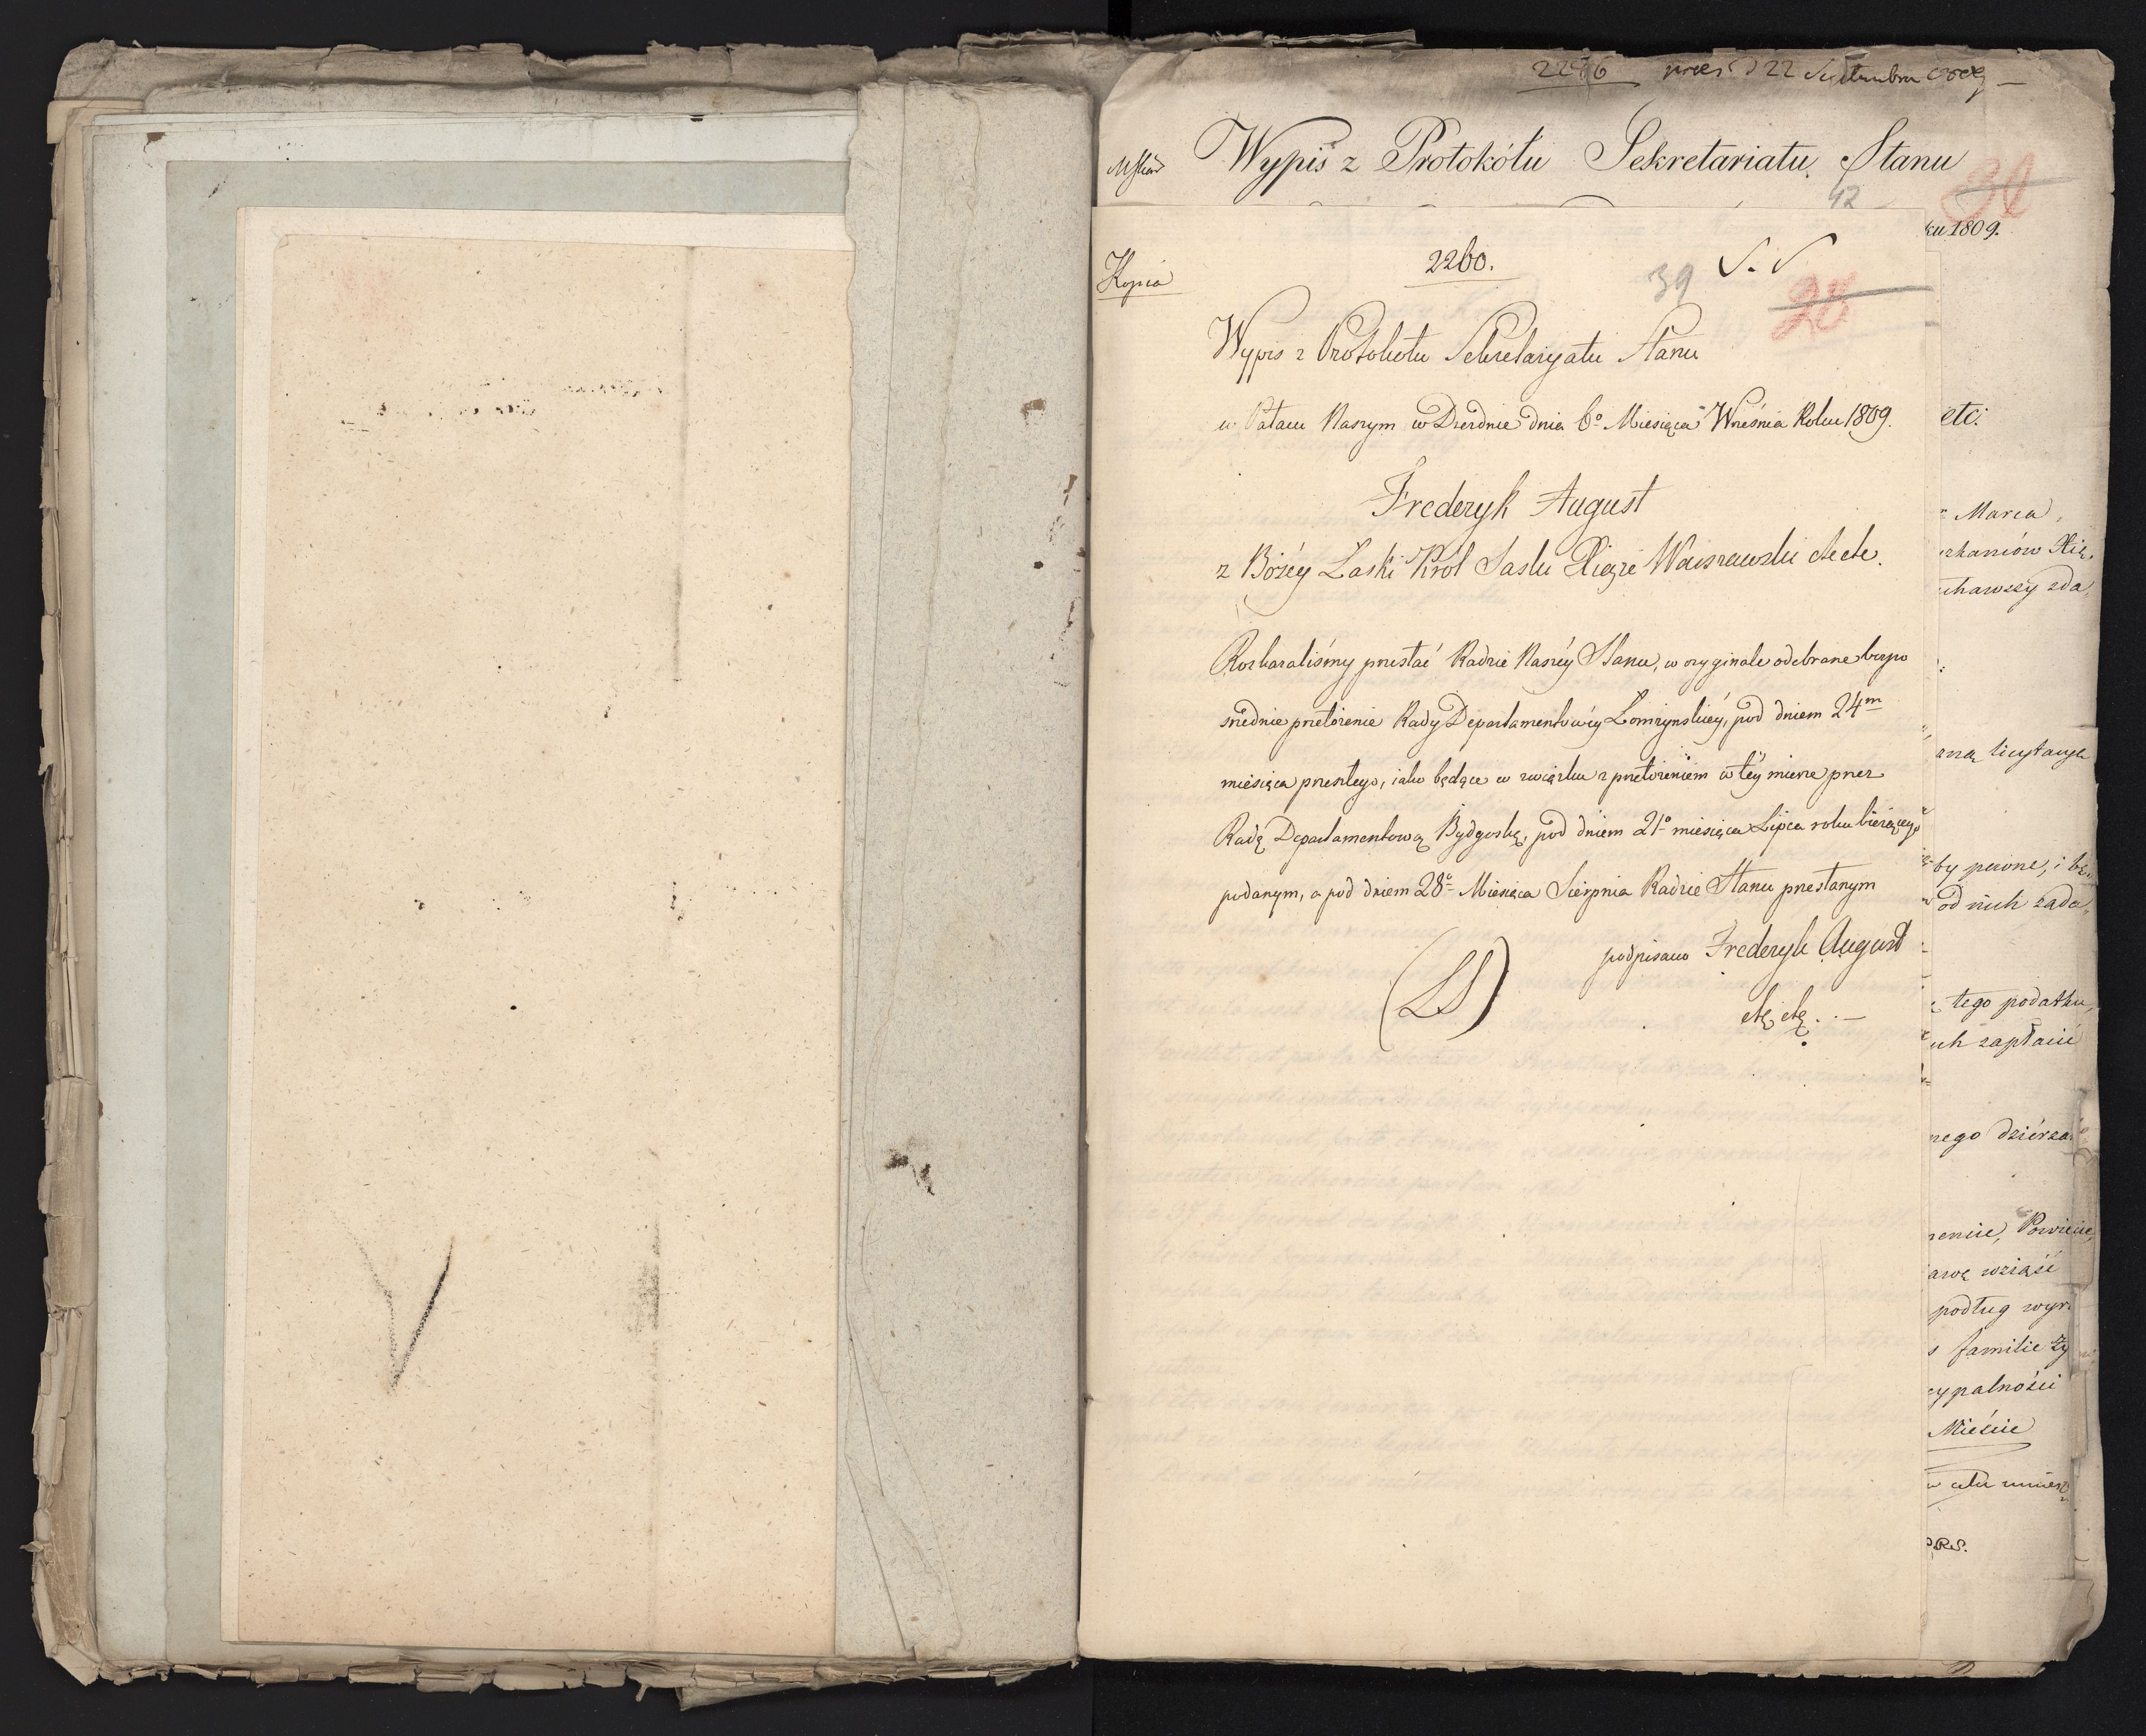 2276 praes d 22 Septembra 1809
Wypis z Protokółu Sekretariatu Stanu
42
30
ku 1809.
Kopia
2260.
39
S. S.
28
Wypis z Protokołu Sekretaryatu Stanu
w Pałacu Naszym w Dreźnie dnia 6o Miesiąca Września Roku 1809.
etc:
Frederyk August
z Bożéy Łaski Król Saski Xiąże Warszawski etc etc.
Marca,
chawszy zda
Rozkazaliśmy przesłać Radzie Naszéy Stanu, w oryginale odebrane bezpo
średnie przełożenie Rady Departamentowéy Łomżyńskiéy, pod dniem 24m
miesiąca przeszłego, iako będące w związku z przełożeniem w téy mierze przez
Radę Departamentową Bydgoską, pod dniem 21o miesiąca Lipca roku bieżącego
podanym, a pod dniem 28o Miesiąca Sierpnia Radzie Stanu przesłanym
podpisano Frederyk August
(LS)
etc etc. . —
licytacya
by pewne, i
od nich żąda,
tego podatku,
uch zapłacić
nego dzierża
Powiecie,
awę wziąść
podług wyr
familie ży
cypalności
Mieście
w celu umiesz